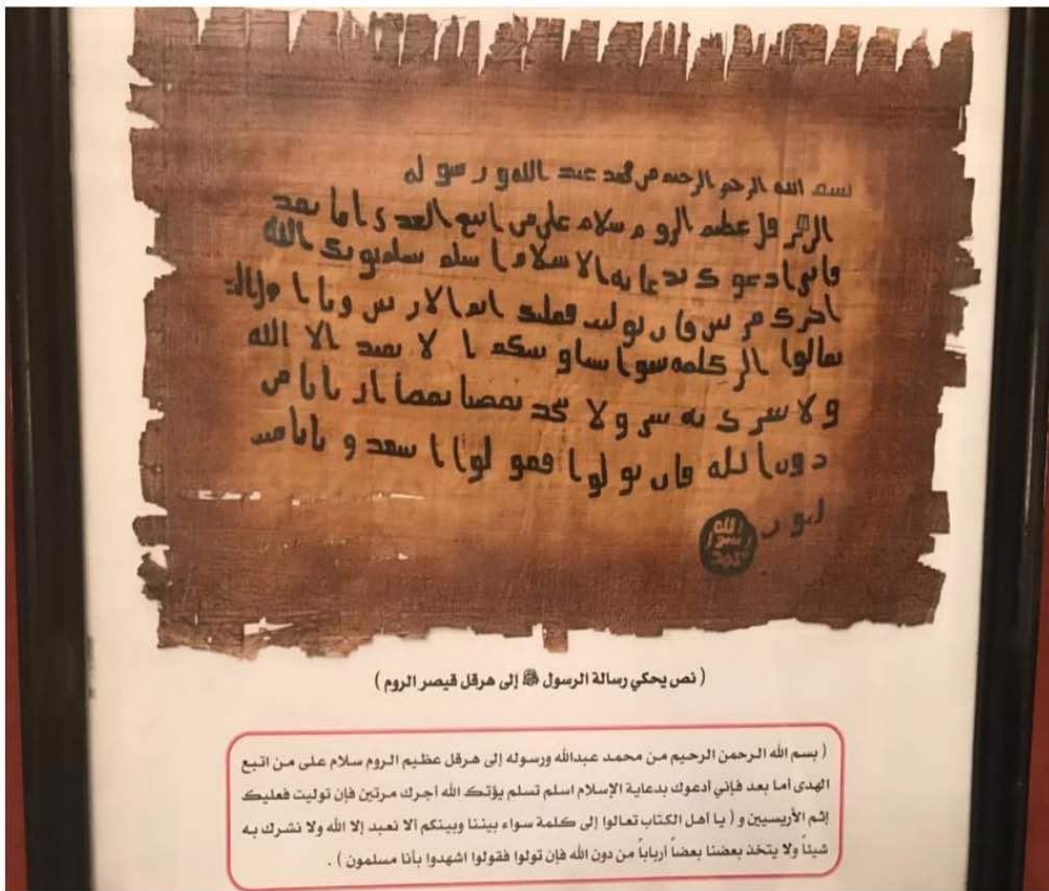 بسم الله الرحمن الرحيم من محمد عبد الله ورسوله
الى هرقل عظيم الروم سلام على من اتبع الهدى اما بعد
فانى ادعوك بدعايه الاسلام اسلم تسلم يوتك الله
اجرك مرتين فان توليت فعليك اثم الاريسين ويا
تعالوا الى كلمه سوا بيننا وبينكم ا لا نعبد الا الله
ولا نشرك به ولا يتخذ بعضنا بعضا اربابا من
دون الله فان تولوا فقولوا اشهدوا بانا مسـ
لمون
الله
رسول
محمد
( نص يحكي رسالة الرسول ﷺ إلى هرقل قيصر الروم )
( بسم الله الرحمن الرحيم من محمد عبدالله ورسوله إلى هرقل عظيم الروم سلام على من اتبع
الهدى أما بعد فإني أدعوك بدعاية الإسلام اسلم تسلم يؤتك الله أجرك مرتين فإن توليت فعليك
إثم الأريسيين و ( يا أهل الكتاب تعالوا إلى كلمة سواء بيننا وبينكم ألا نعبد إلا الله ولا نشرك به
شيئاً ولا يتخذ بعضنا بعضاً أرباباً من دون الله فإن تولوا فقولوا اشهدوا بأنا مسلمون ) .